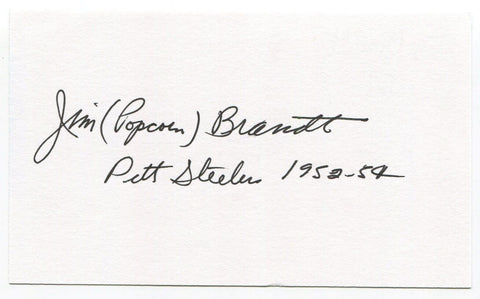 Jim (Popcorn) Brandt
Pitt Steelers 1952-54